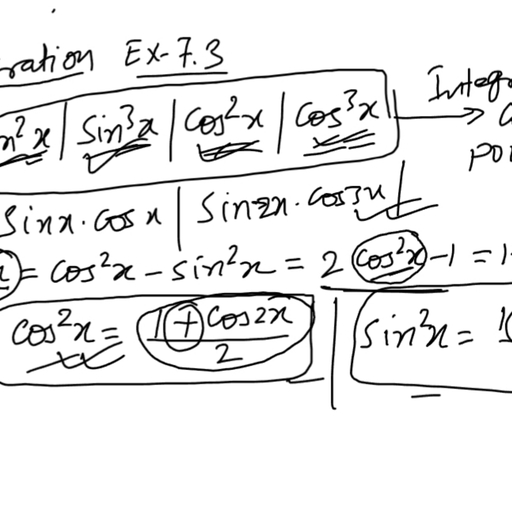 ration EX-7.3
n²x | Sin³x | Cos²x | Cos³x → Integ
Sinx·Cosx | Sin2x·Cos3x |
= cos²x - sin²x = 2 cos²x - 1 = 1
cos²x = 1 + cos2x / 2 | Sin²x = 1